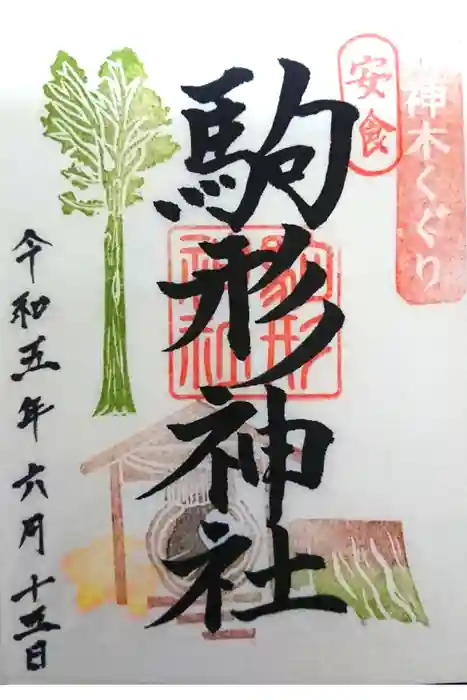 神木くぐり
安食
駒形神社
駒形神社
令和五年六月十五日